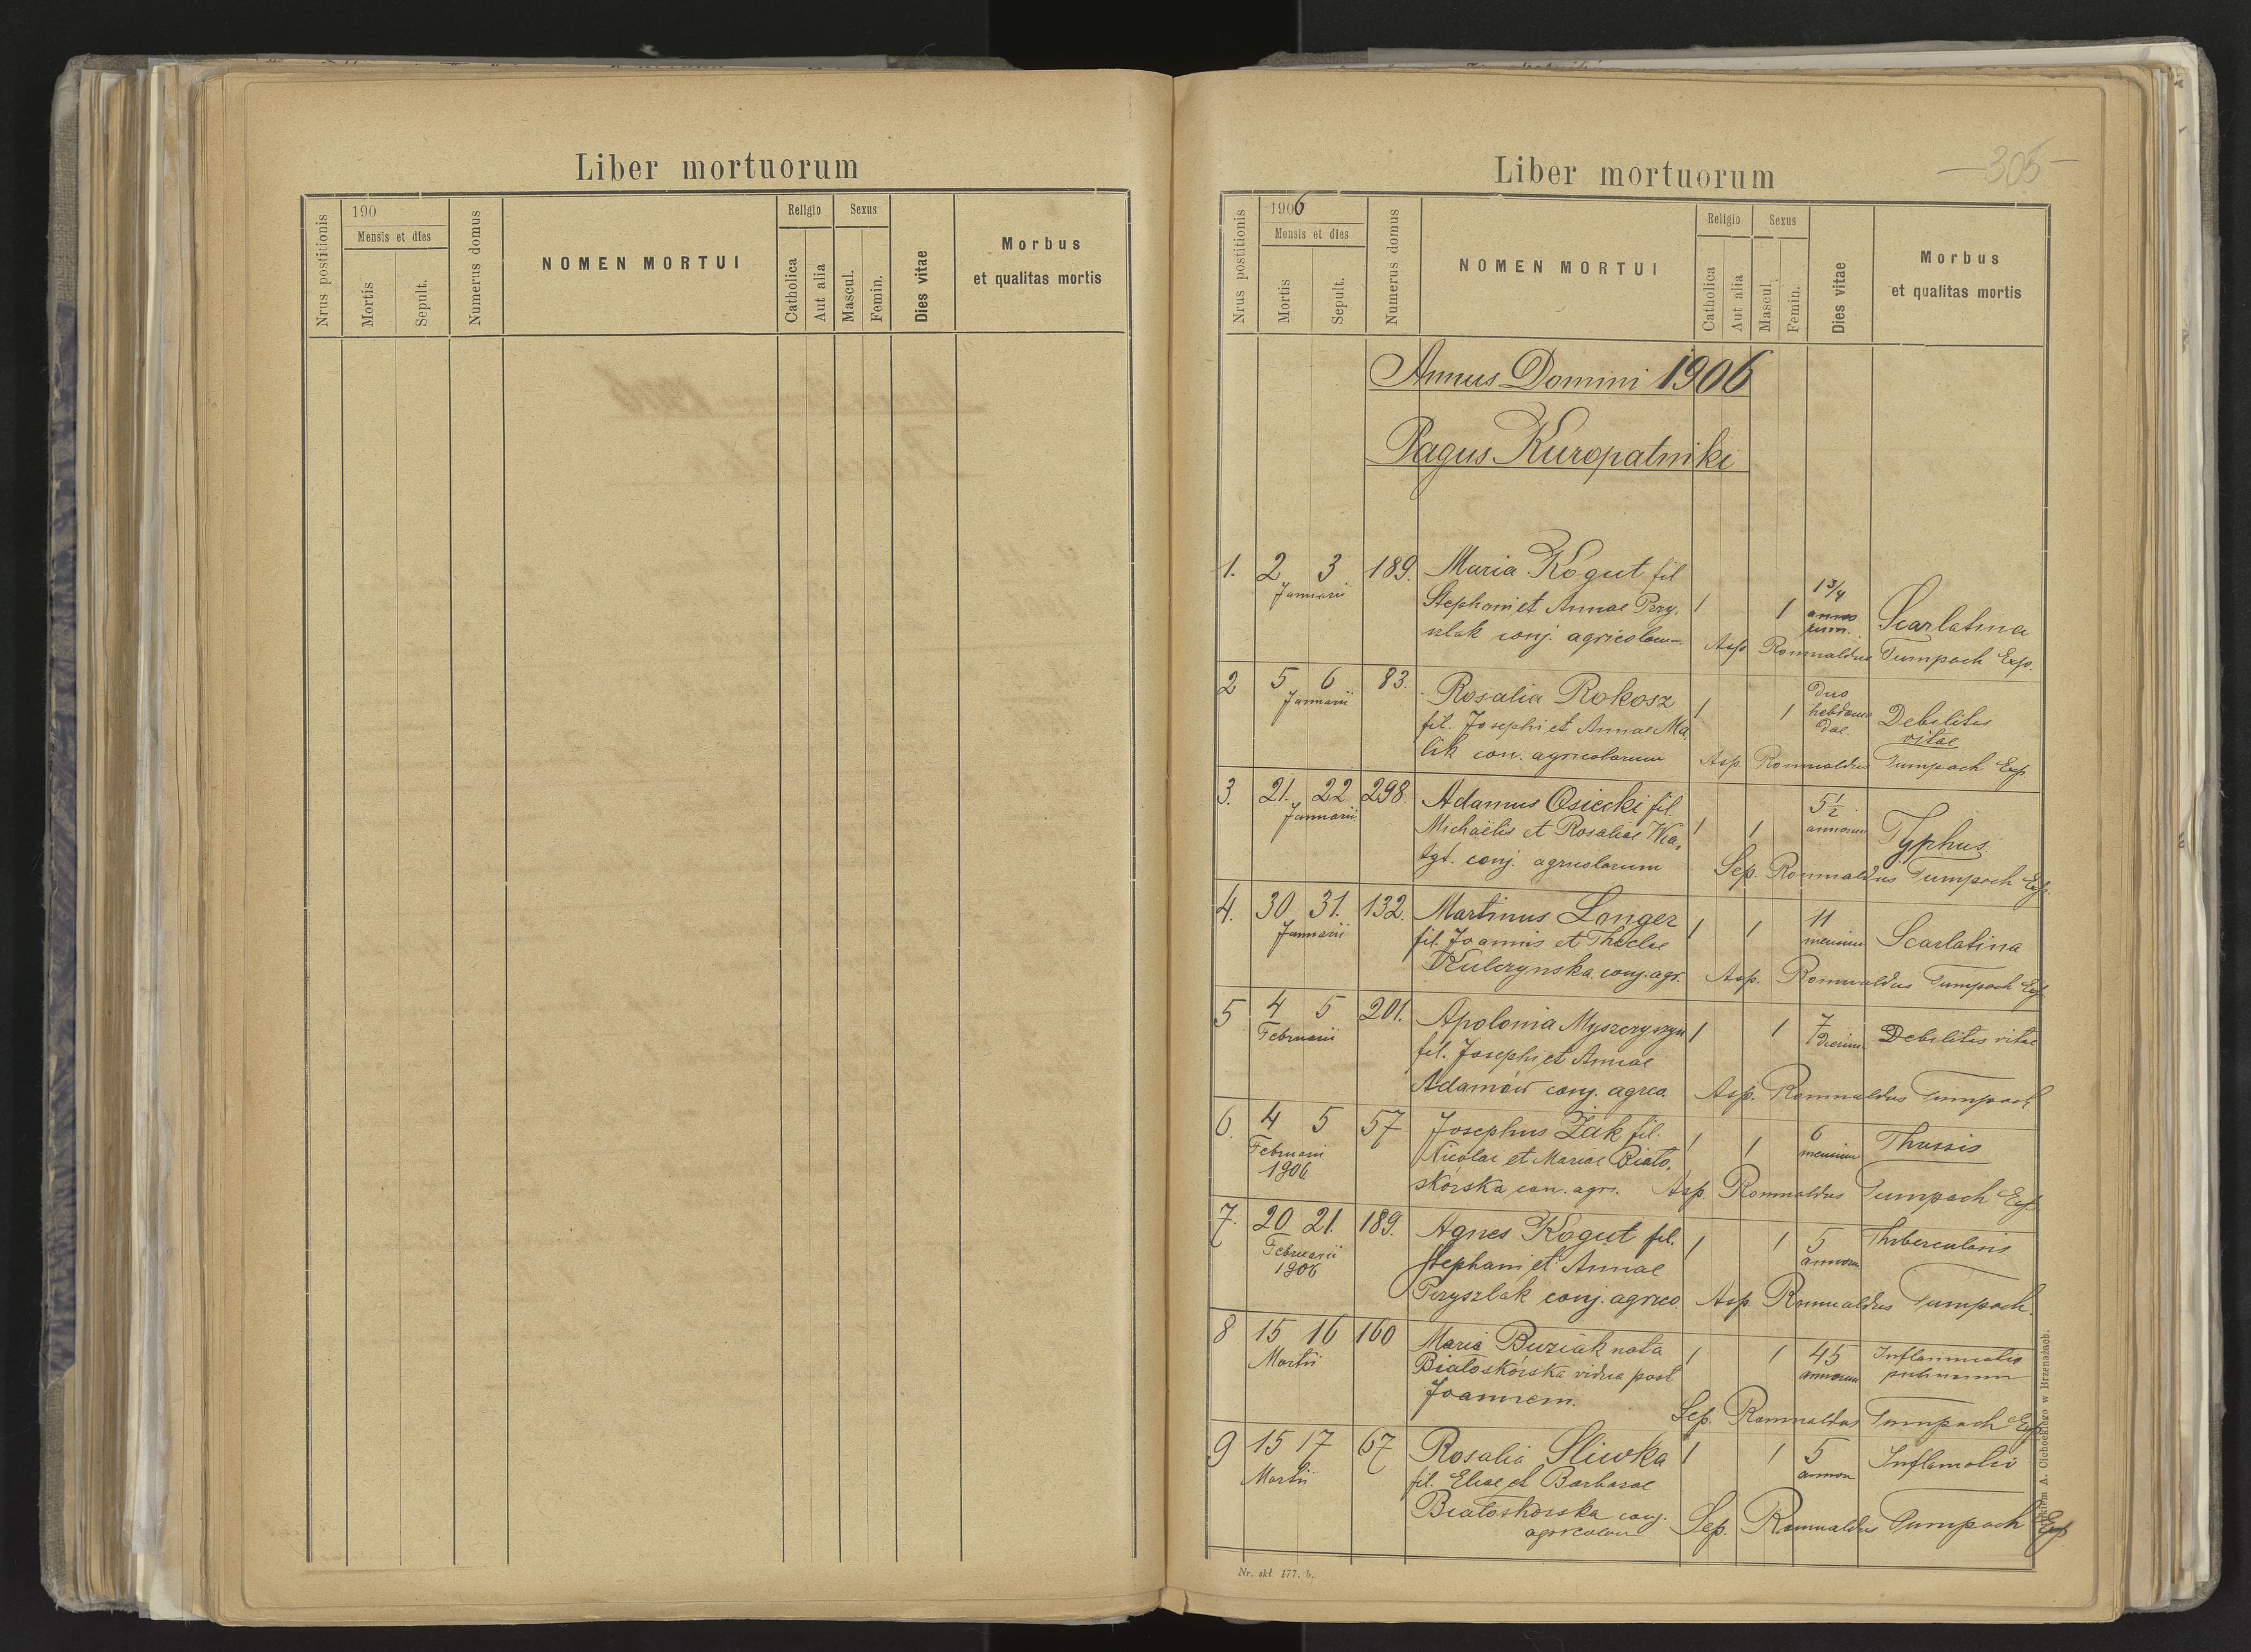 Liber mortuorum
Nrus postitionis
190
Mensis et dies
Mortis
Sepult.
Numerus domus
NOMEN MORTUI
Religio
Catholica
Aut alia
Sexus
Mascul.
Femin.
Dies vitae
Morbus
et qualitas mortis
Liber mortuorum
305
Nrus postitionis
1906
Mensis et dies
Mortis
Sepult.
Numerus domus
NOMEN MORTUI
Religio
Catholica
Aut alia
Sexus
Mascul.
Femin.
Dies vitae
Morbus
et qualitas mortis
Annus Domini 1906
Pagus Kuropatniki
1. 2 3 189. Maria Kogut fil
Januarii
Stephani et Annae Przy-
szlak conj. agricolarum
1 1 1 3/4 anno rum. Scarlatina
Asp Romualdus Tumpach Exp.
2 5 6 83. Rosalia Rokosz
Januarii
fil. Josephi et Annae Ma-
lik con. agricolarum
1 1 Duo hebdoma dae. Debilitas
vitae
Asp. Romualdus Tumpach Exp.
3. 21. 22 298. Adamus Osiecki fil.
Januarii
Michaëlis et Rosaliae
conj. agricolarum
1 1 5 1/2 annorum Typhus
Sep. Romualdus Tumpach Exp.
4. 30 31. 132. Martinus Longer
Januarii
fil. Joannis et Theclae
Kulczynska conj. agr.
1 1 11 mensium Scarlatina
Asp. Romualdus Tumpach Exp.
5 4 5 201. Apolonia Myszczyszyn
Februarii
fil. Josephi et Annae
Adamów conj. agrico.
1 1 7 dierum Debilitas vitae
Asp. Romualdus Tumpach
6. 4 5 57 Josephus Żak fil.
Februarii
1906
Nicolai et Mariae Biało-
skórska con. agri.
1 1 6 mensium Thussis
Asp. Romualdus Tumpach Exp.
7. 20 21. 189. Agnes Kogut fil.
Februarii
1906
Stephani et Annae
Przyszlak conj. agrico
1 1 5 annorum Thuberculosis
Asp. Romualdus Tumpach.
8 15 16 160 Maria Buziak nata
Martii
Białoskórska vidua post
Joannem.
1 1 45 annorum Inflammatio
pulmonum
Sep. Romualdus Tumpach Exp.
9 15 17 67 Rosalia Śliwka
Martii
fil. Eliae et Barbarae
Białoskórska conj.
agricolarum
1 1 5 annor Inflamatio
Sep. Romualdus Tumpach Exp
Nr. skł. 177. b.
A. Cichockiego w Brzeżanach.